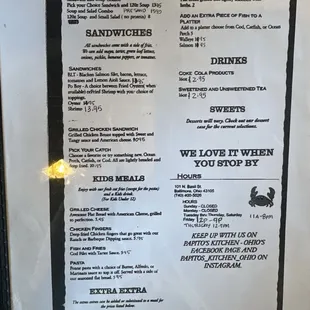 Pick your Choice Sandwich and 12oz Soup
Soup and Salad Combo
12oz Soup and Small Salad
SANDWICHES
All sandwiches come with a side of fries.
onions, pickles, banana peppers, or tomatoes.
SANDWICHES
BLT - Blacken Salmon Slav, bacon, lettuce,
tomatoes and Lemon Aioli Sauce.
Po Boy - A choice between Fried Oysters( when
available) or Fried Shrimp with you choice of
toppings.
Oyster
Shrimp 13.95
GRILLED CHICKEN SANDWICH
Grilled Chicken Breast topped with Sweet and
Tangy sauce and American cheese.
PICK YOUR CATCH
Choose a favorite or try something new. Ocean
Perch, Catfish, or Cod. All are lightly breaded and
KIDS MEALS
Enjoy with our fresh cut fries (except for the pasta)
and a Kids Drink.
(For Kids Under 12)
GRILLED CHEESE
Awesome Flat Bread with American Cheese, grilled
to perfection.
CHICKEN FINGERS
Deep fried Chicken fingers that go great with our
Ranch or Barbeque Dipping sauce.
FISH AND FRIES
Cod Bites with Tarter Sauce
PASTA
Penne pasta with a choice of Butter, Alfredo, or
Marinara sauce to top it off. Served with a side of
our seasoned flat bread.
EXTRA EXTRA
The extra extras can be added or substituted to a meal for
the prices listed below.
ADD AN EXTRA PIECE OF FISH TO A
PLATTER
Add to a platter choose from Cod, Catfish, or Ocean
Perch
Walleye
Salmon
DRINKS
COKE COLA PRODUCTS
2.95
SWEETENED AND UNSWEETENED TEA
2.95
SWEETS
Desserts will vary. Check our our dessert
case for the current selections.
WE LOVE IT WHEN
YOU STOP BY
HOURS
Baltimore, Ohio 43105
HOURS
Sunday - CLOSED
Monday - CLOSED
Tuesday thru Thursday, Saturday 11A-8PM
Friday
Thursday
KEEP UP WITH US ON
PAPITO'S KITCHEN - OHIO'S
FACEBOOK PAGE AND
PAPITOS_KITCHEN_OHIO ON
INSTAGRAM.